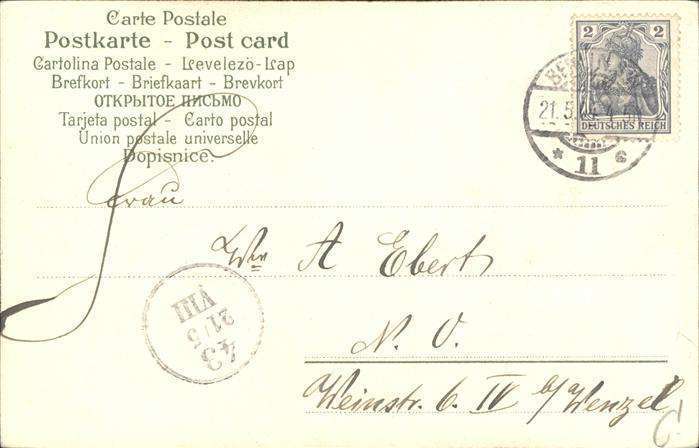 Carte Postale
Postkarte - Post card
Cartolina Postale - Levelezö-Lap
Brefkort - Briefkaart - Brevkort
ОТКРЫТОЕ ПИСЬМО
Tarjeta postal - Carto postal
Union postale universelle
Dopisnice.
2 2
DEUTSCHES REICH
21.5.
* 11 c
Frau
Ww A Ebert
N. O.
Weinstr. 6. IV b/Wenzel
43
21/5
VIII